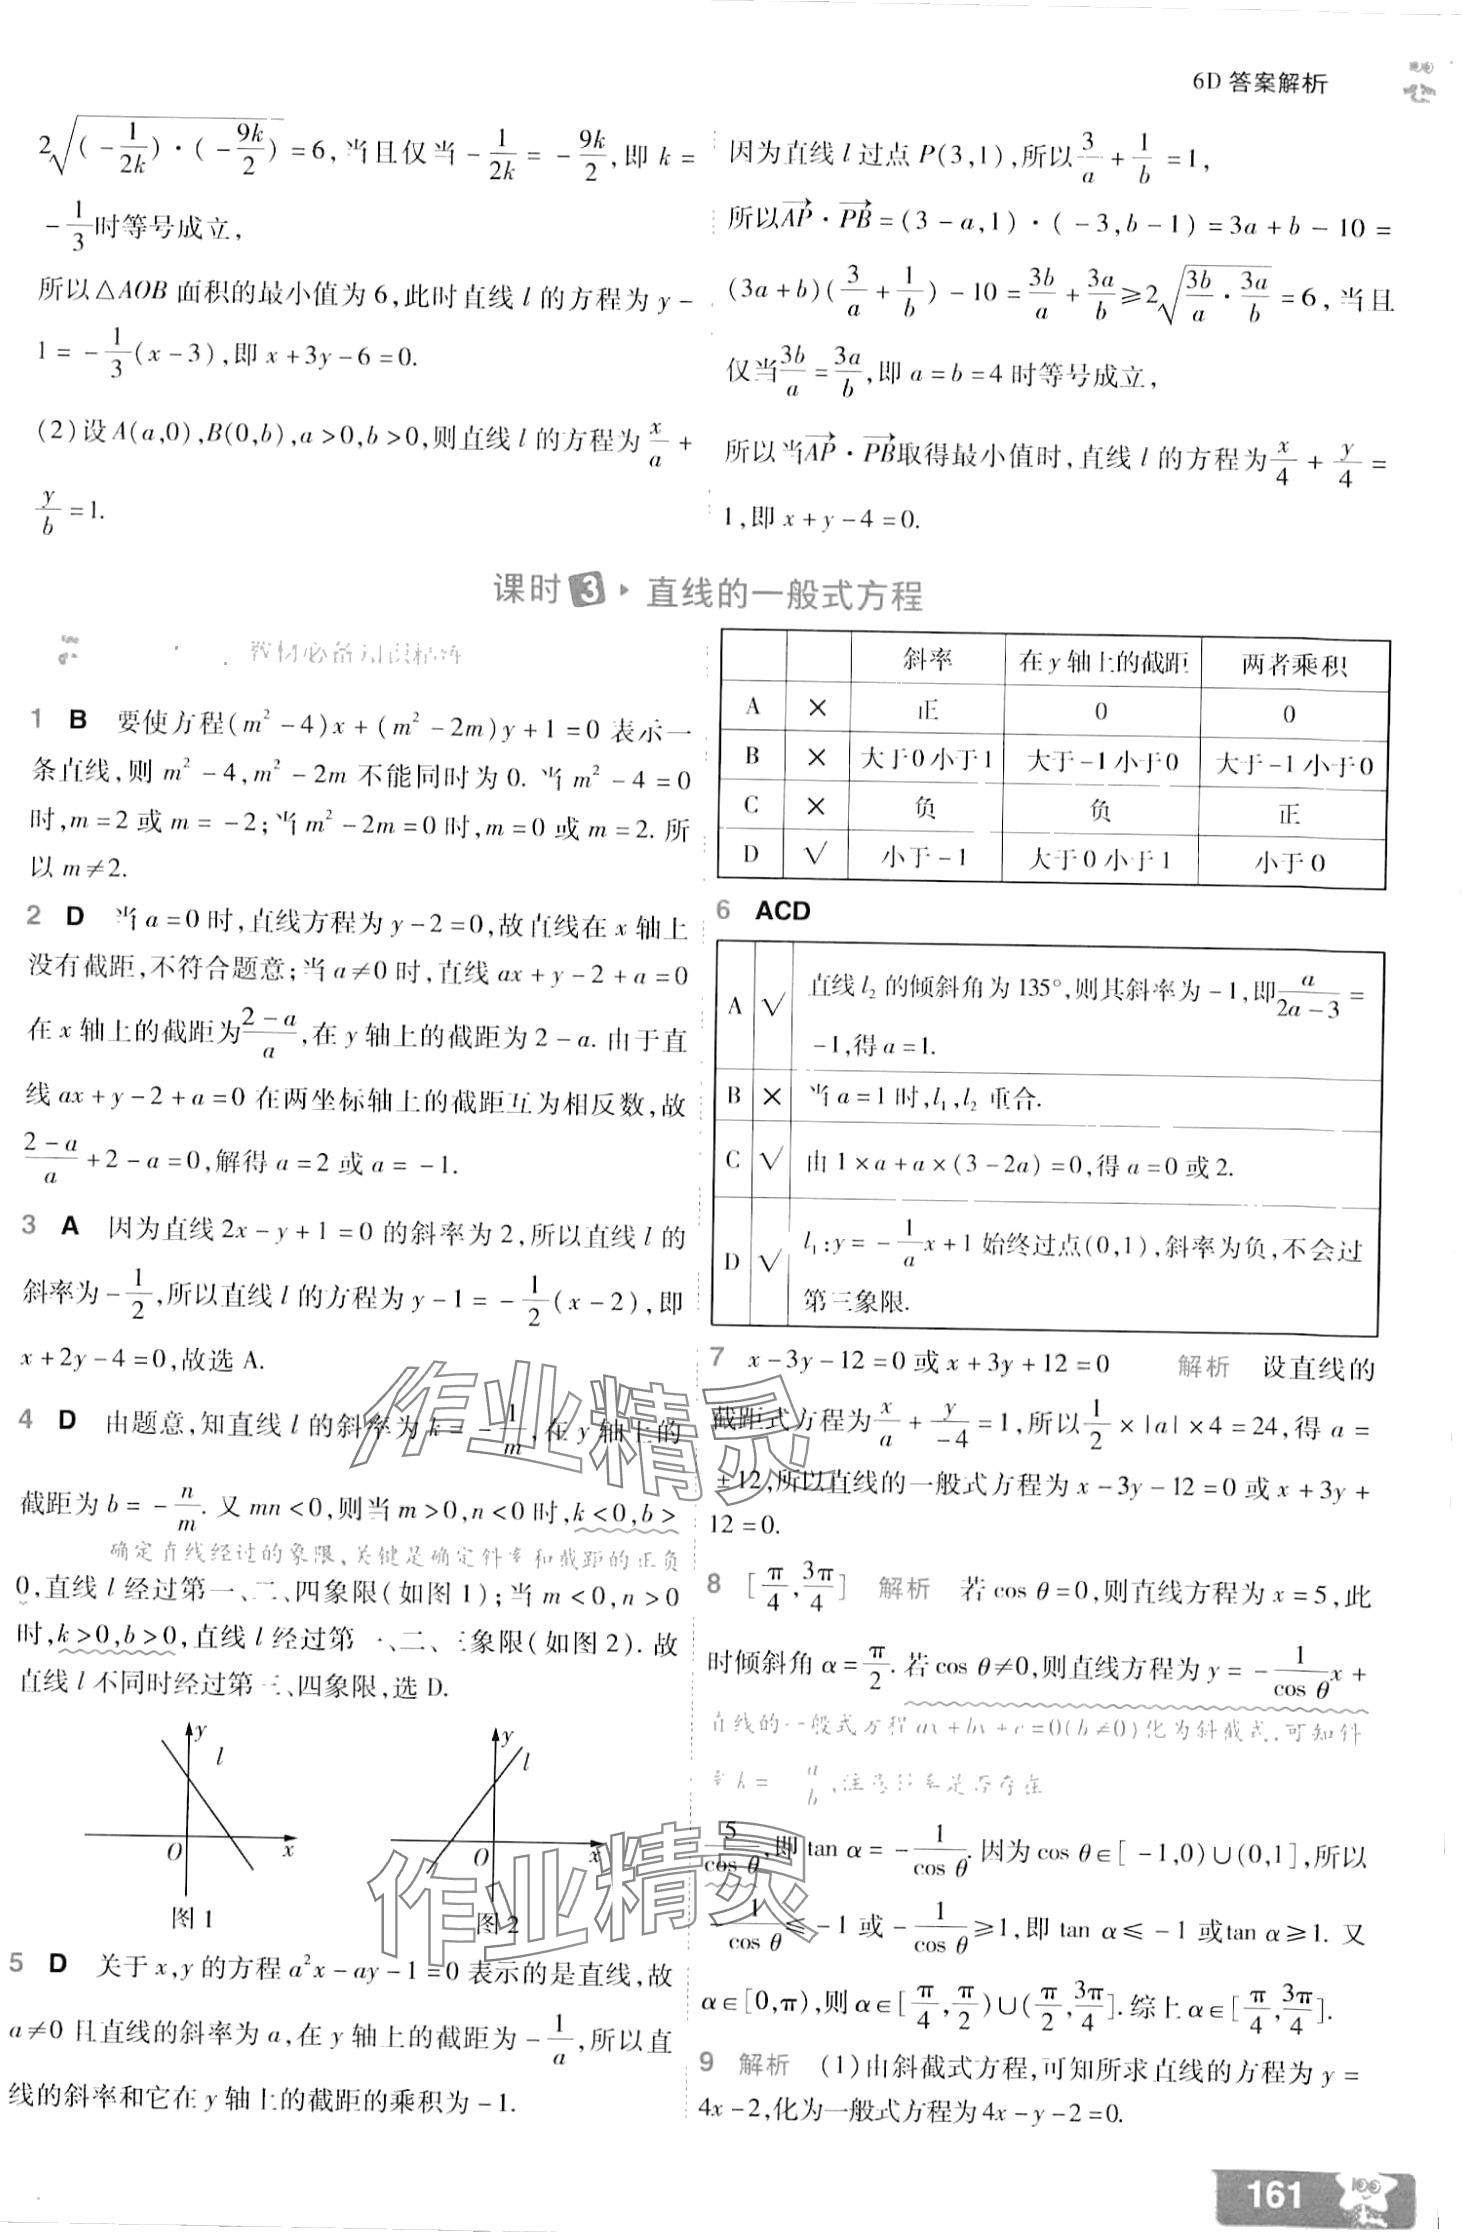 6D 答案解析
2√((-1/(2k))·(-9k/2))=6,当且仅当-1/(2k)=-9k/2,即 k=
-1/3时等号成立,
所以△AOB 面积的最小值为6,此时直线 l 的方程为 y-
1=-1/3(x-3),即 x+3y-6=0.
(2)设A(a,0),B(0,b),a>0,b>0,则直线 l 的方程为x/a+
y/b=1.
因为直线 l 过点 P(3,1),所以3/a+1/b=1,
所以AP·PB=(3-a,1)·(-3,b-1)=3a+b-10=
(3a+b)(3/a+1/b)-10=3b/a+3a/b≥2√(3b/a·3a/b)=6,当且
仅当3b/a=3a/b,即 a=b=4 时等号成立,
所以当AP·PB取得最小值时,直线 l 的方程为x/4+y/4=
1,即 x+y-4=0.
课时3 直线的一般式方程
教材必备知识精练
1 B 要使方程(m²-4)x+(m²-2m)y+1=0 表示一
条直线,则 m²-4,m²-2m 不能同时为0. 当 m²-4=0
时,m=2 或 m=-2;当 m²-2m=0 时,m=0 或 m=2. 所
以 m≠2.
2 D 当 a=0 时,直线方程为 y-2=0,故直线在 x 轴上
没有截距,不符合题意;当 a≠0 时,直线 ax+y-2+a=0
在 x 轴上的截距为(2-a)/a,在 y 轴上的截距为 2-a. 由于直
线 ax+y-2+a=0 在两坐标轴上的截距互为相反数,故
(2-a)/a+2-a=0,解得 a=2 或 a=-1.
3 A 因为直线 2x-y+1=0 的斜率为 2,所以直线 l 的
斜率为-1/2,所以直线 l 的方程为 y-1=-1/2(x-2),即
x+2y-4=0,故选 A.
4 D 由题意,知直线 l 的斜率为 k=-1/m,在 y 轴上的
截距为 b=-n/m. 又 mn<0,则当 m>0,n<0 时,k<0,b>
确定直线经过的象限、关键是确定斜率和截距的正负
0,直线 l 经过第一、二、四象限(如图 1);当 m<0,n>0
时,k>0,b>0,直线 l 经过第一、二、三象限(如图 2). 故
直线 l 不同时经过第三、四象限,选 D.
y
l
O
x
图 1
y
l
O
x
图 2
5 D 关于 x,y 的方程 a²x-ay-1=0 表示的是直线,故
a≠0 且直线的斜率为 a,在 y 轴上的截距为-1/a,所以直
线的斜率和它在 y 轴上的截距的乘积为-1.
斜率 在 y 轴上的截距 两者乘积
A × 正 0 0
B × 大于0小于1 大于-1小于0 大于-1小于0
C × 负 负 正
D √ 小于-1 大于0小于1 小于0
6 ACD
A √ 直线 l₂ 的倾斜角为 135°,则其斜率为-1,即a/(2a-3)=
-1,得 a=1.
B × 当 a=1 时,l₁,l₂ 重合.
C √ 由 1×a+a×(3-2a)=0,得 a=0 或 2.
D √ l₁:y=-1/a x+1 始终过点(0,1),斜率为负,不会过
第三象限.
7 x-3y-12=0 或 x+3y+12=0 解析 设直线的
截距式方程为x/a+y/(-4)=1,所以1/2×|a|×4=24,得 a=
±12,所以直线的一般式方程为 x-3y-12=0 或 x+3y+
12=0.
8 [π/4,3π/4] 解析 若 cos θ=0,则直线方程为 x=5,此
时倾斜角 α=π/2. 若 cos θ≠0,则直线方程为 y=-1/cos θ x+
直线的一般式方程ax+by+c=0(b≠0)化为斜截式,可知斜
率k=-a/b,注意斜率是否存在
5/cos θ,即 tan α=-1/cos θ. 因为 cos θ∈[-1,0)∪(0,1],所以
-1/cos θ≤-1 或-1/cos θ≥1,即 tan α≤-1 或tan α≥1. 又
α∈[0,π),则 α∈[π/4,π/2)∪(π/2,3π/4]. 综上 α∈[π/4,3π/4].
9 解析 (1)由斜截式方程,可知所求直线的方程为 y=
4x-2,化为一般式方程为 4x-y-2=0.
作业精灵
作业精灵
161